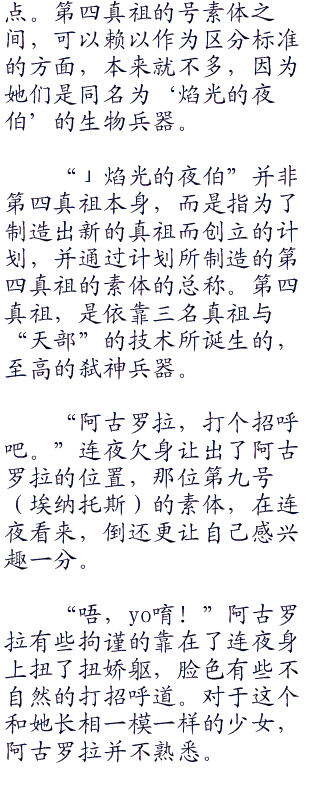 点。第四真祖的号素体之
间，可以赖以作为区分标准
的方面，本来就不多，因为
她们是同名为‘焰光的夜
伯’的生物兵器。
“」焰光的夜伯”并非
第四真祖本身，而是指为了
制造出新的真祖而创立的计
划，并通过计划所制造的第
四真祖的素体的总称。第四
真祖，是依靠三名真祖与
“天部”的技术所诞生的，
至高的弑神兵器。
“阿古罗拉，打个招呼
吧。”连夜欠身让出了阿古
罗拉的位置，那位第九号
（埃纳托斯）的素体，在连
夜看来，倒还更让自己感兴
趣一分。
“唔，yo唷！”阿古罗
拉有些拘谨的靠在了连夜身
上扭了扭娇躯，脸色有些不
自然的打招呼道。对于这个
和她长相一模一样的少女，
阿古罗拉并不熟悉。